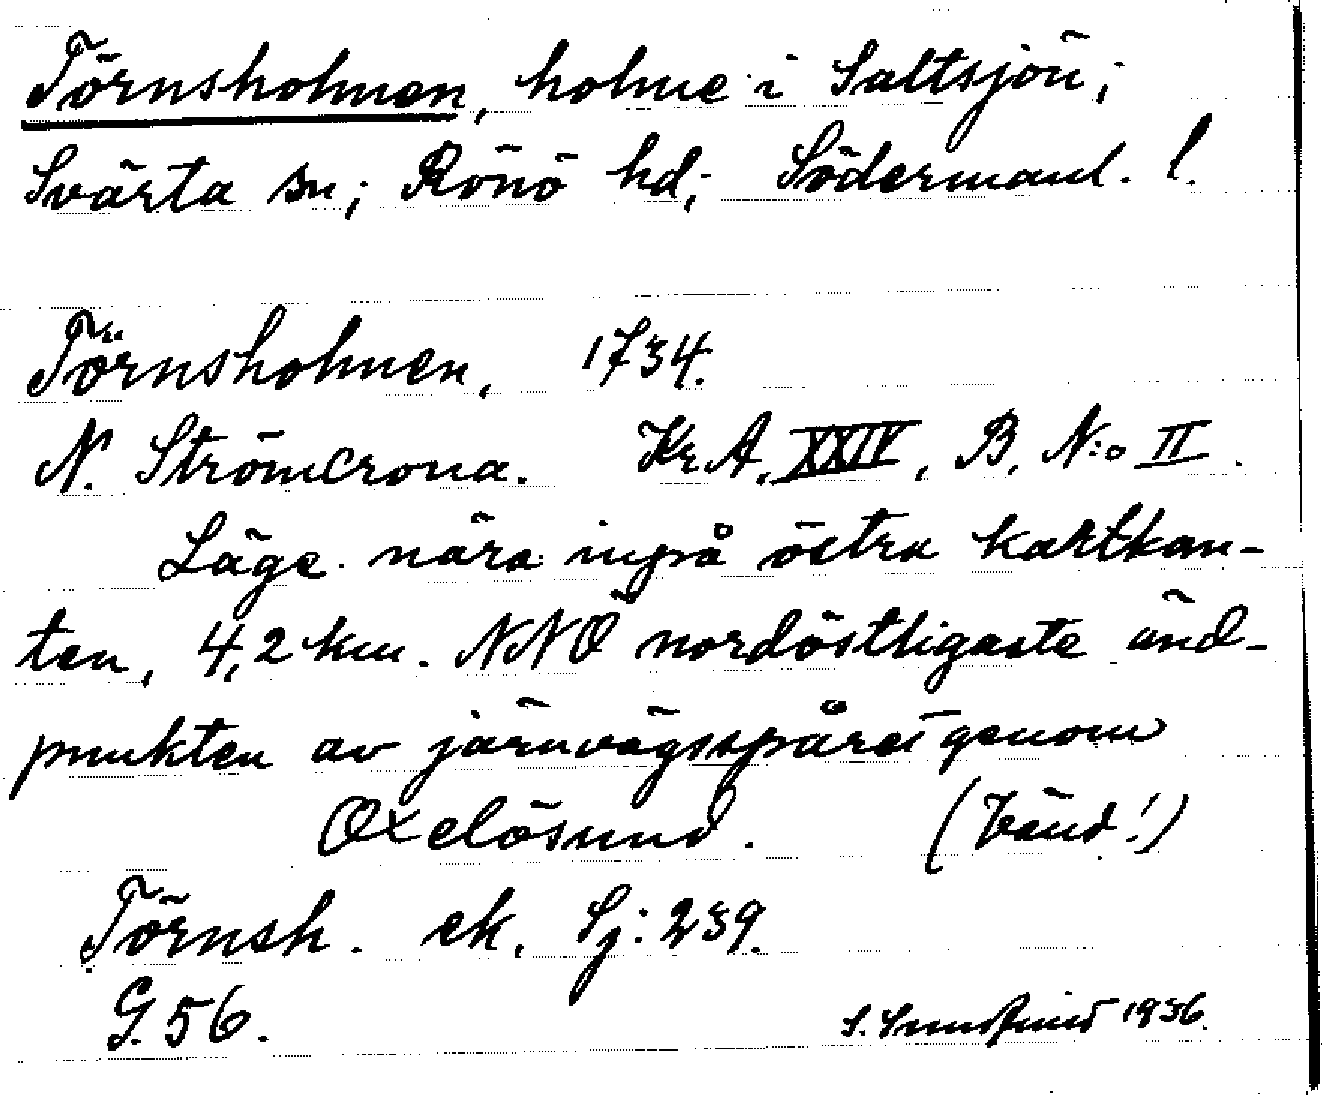 Törnsholmen, holme i Saltsjön;
Svärta sn; Rönö hd; Södermanl. l.
Törnsholmen, 1734.
N. Strömcrona. Kr. A. XXIV, B, N:o II.
Läge nära inpå östra kartkan-
ten, 4,2 km. NNÖ nordöstligaste änd-
punkten av järnvägsspåret genom
Oxelösund. (Vänd!)
Törnsh. ek. Sj: 239.
G. 56.
S. 1936.